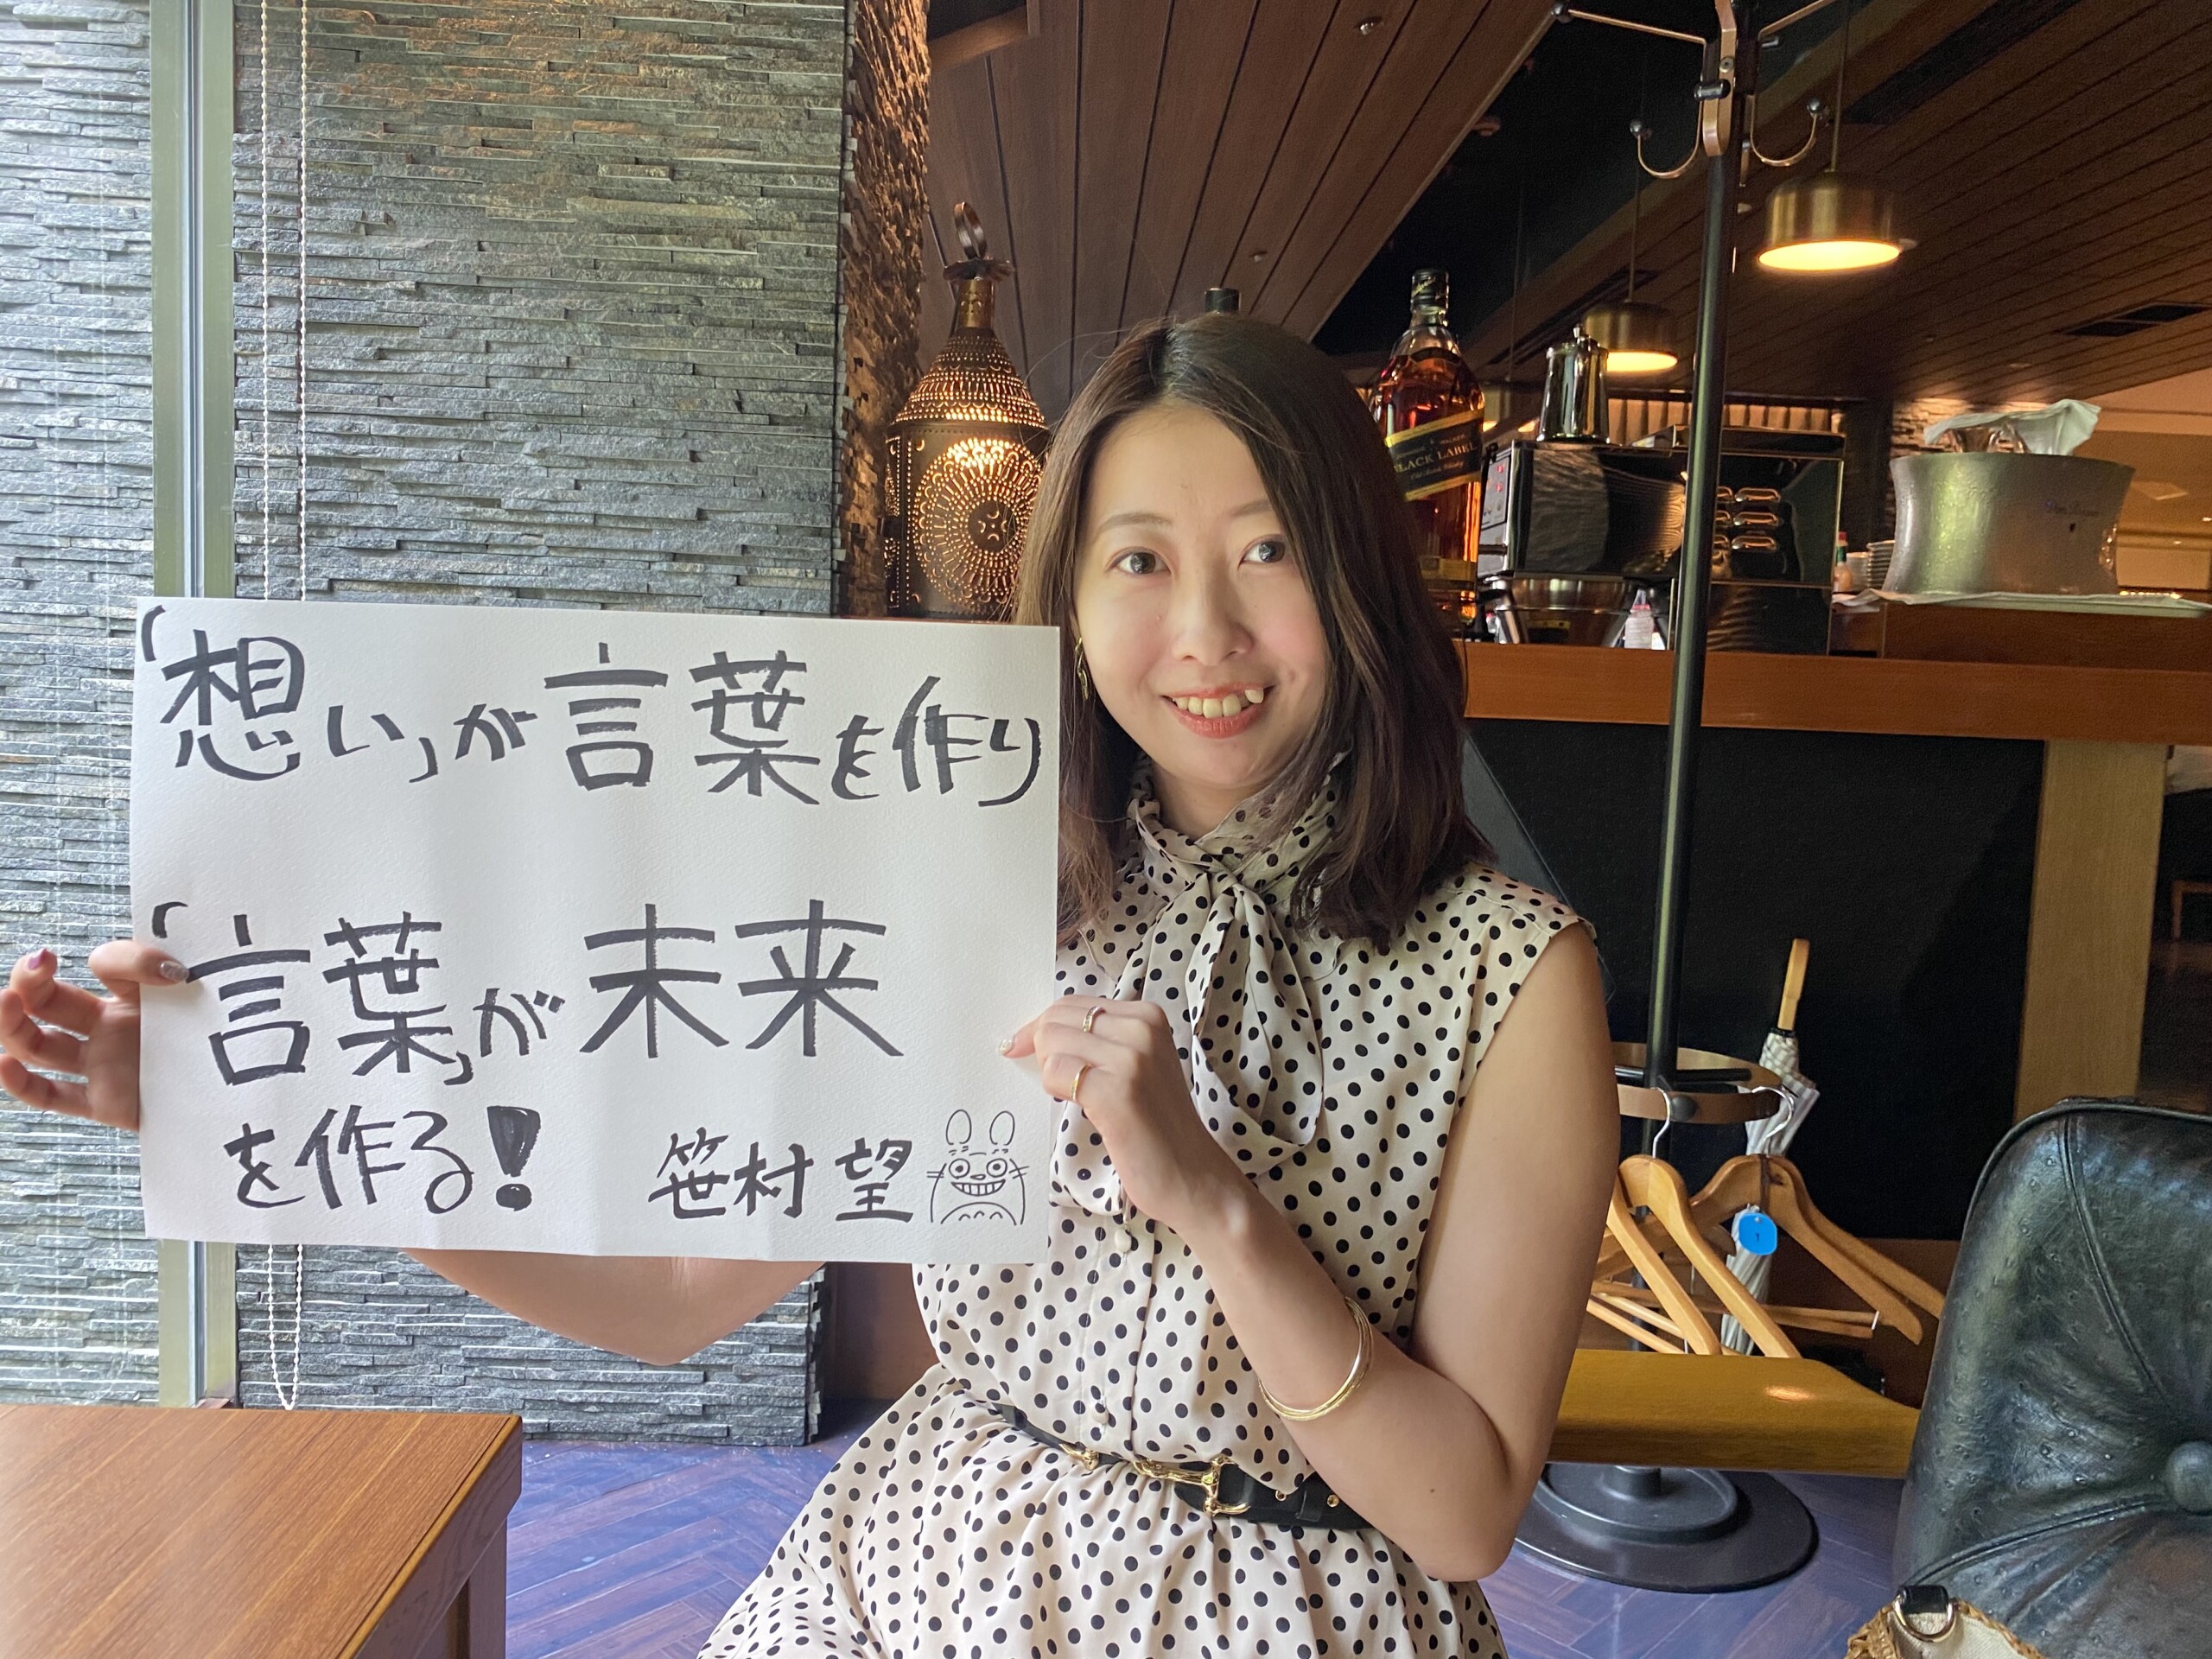 「想い」が言葉を作り
「言葉」が未来
を作る!
笹村望
WALKER
BLACK LABEL
1